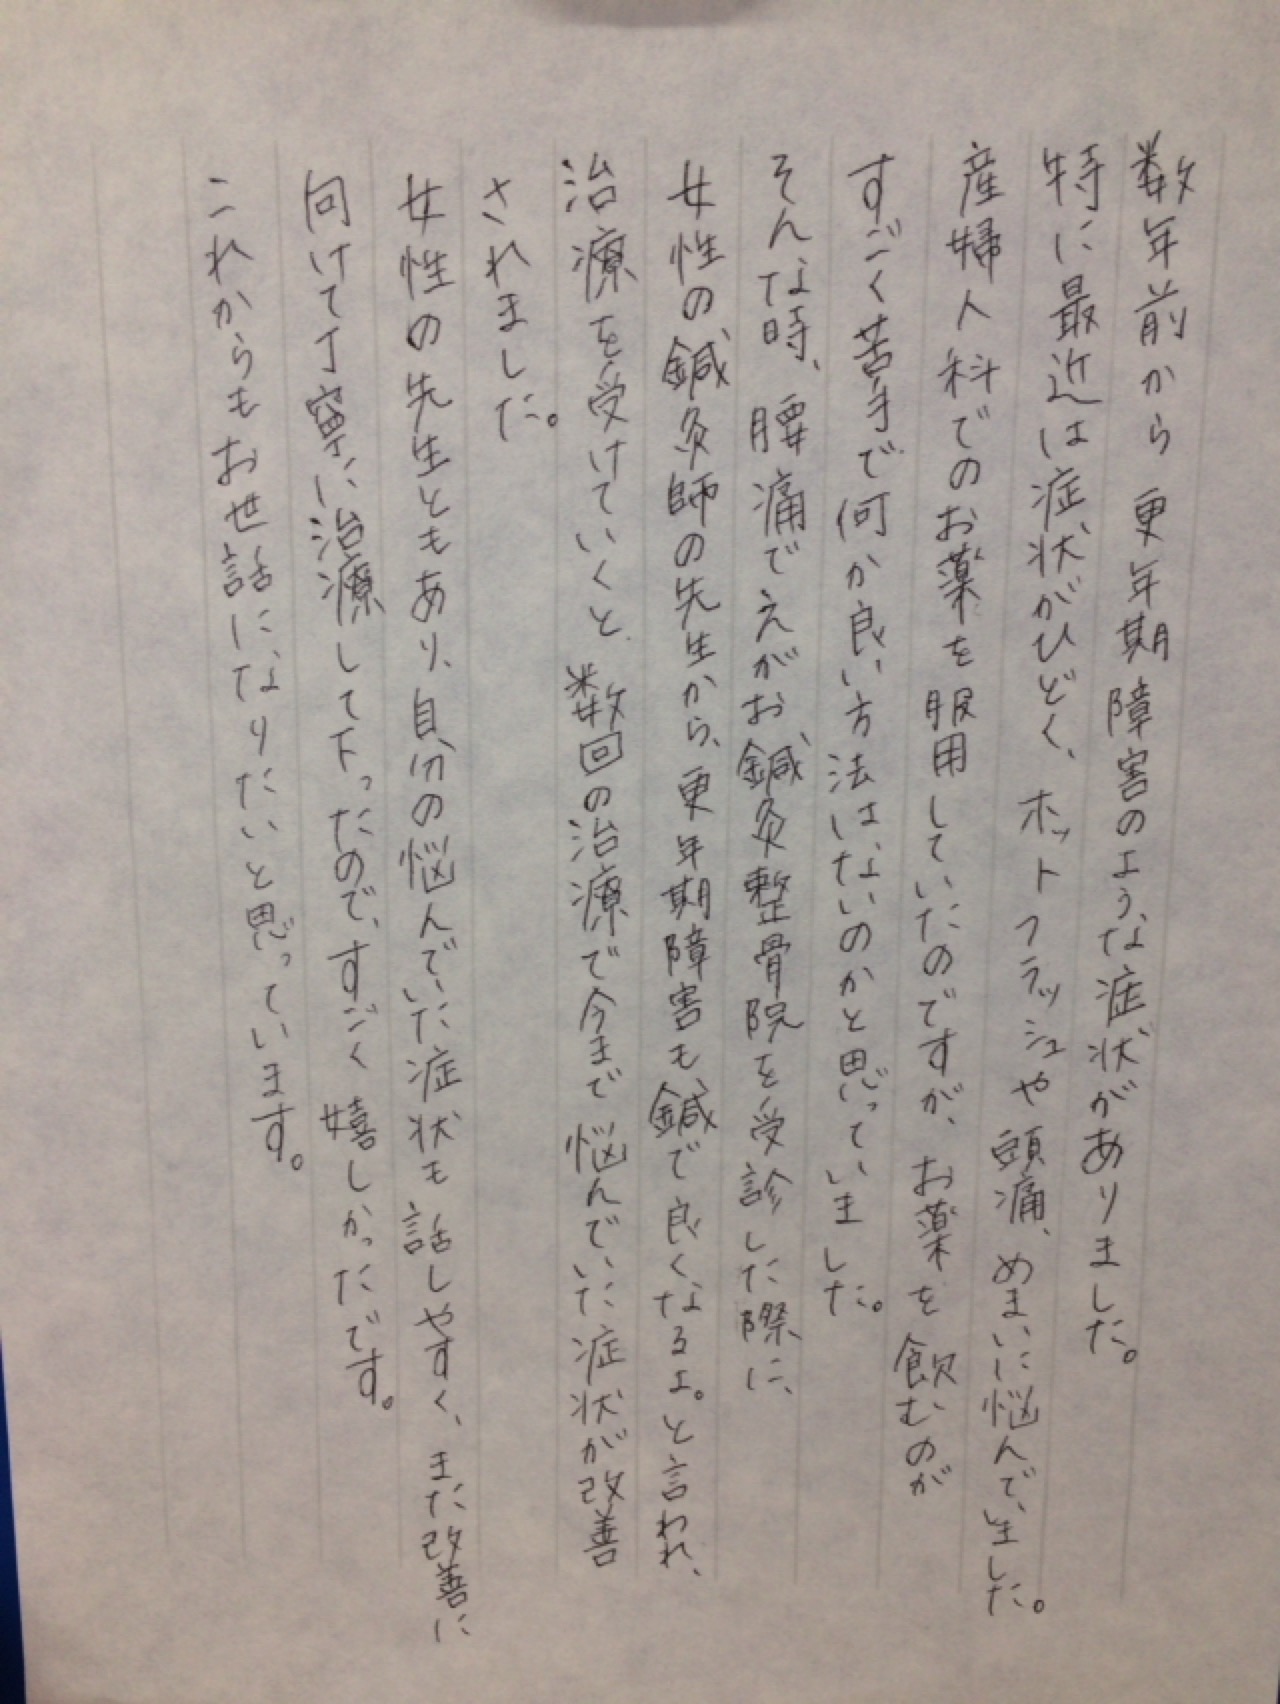 数年前から更年期障害のような症状がありました。
特に最近は症状がひどく、ホットフラッシュや頭痛、めまいに悩んでいました。
産婦人科でのお薬を服用していたのですが、お薬を飲むのが
すごく苦手で何か良い方法はないのかと思っていました。
そんな時、腰痛でえがお鍼灸整骨院を受診した際に、
女性の鍼灸師の先生から、更年期障害も鍼で良くなるよ。と言われ、
治療を受けていくと、数回の治療で今まで悩んでいた症状が改善
されました。
女性の先生ともあり、自分の悩んでいた症状も話しやすく、また改善に
向けて丁寧に治療して下ったので、すごく嬉しかったです。
これからもお世話になりたいと思っています。